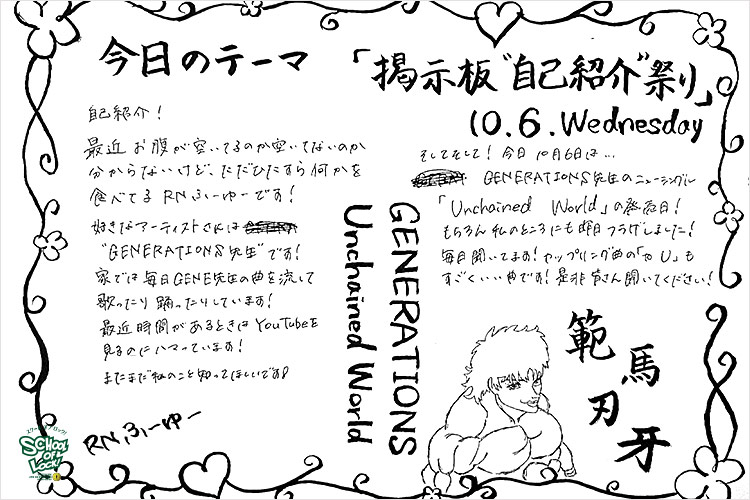 今日のテーマ 「掲示板"自己紹介"祭り」
10.6.Wednesday
自己紹介!
最近お腹が空いてるのか空いてないのか
分からないけど、ただひたすら何かを
食べてるRNふーゆーです!
好きなアーティストさんは
"GENERATIONS先生"です!
家では毎日GENE先生の曲を流して
歌ったり踊ったりしています!
最近時間があるときはYouTubeを
見るのにハマっています!
まだまだ私のこと知ってほしいです
RN ふーゆー
GENERATIONS
Unchained World
そしてそして!今日10月6日は...
GENERATIONS先生のニューシングル
「Unchained World」の発売日!
もちろん私のところにも昨日フラゲしました!
毎日聞いてます!カップリング曲の「U」も
すごくいい曲です!是非皆さん聞いてください!
範馬刃牙
SCHOOL OF LOCK!